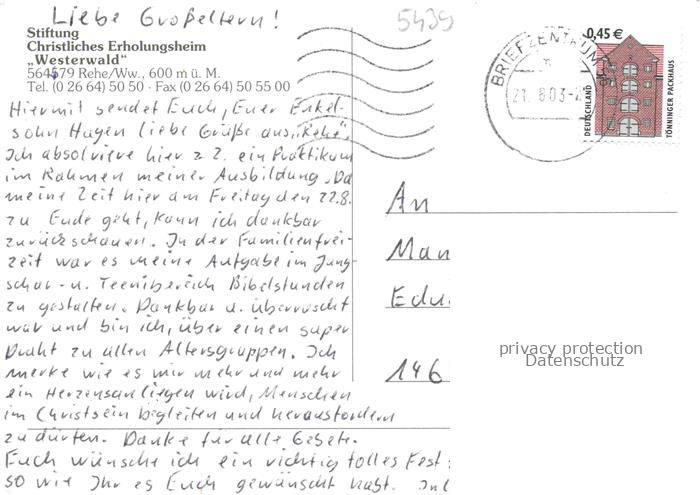 Liebe Großeltern!
5439
Stiftung
Christliches Erholungsheim
„Westerwald"
564579 Rehe/Ww., 600 m ü. M.
Tel. (0 26 64) 50 50 · Fax (0 26 64) 50 55 00
Hiermit sendet Euch, Euer Enkel-
sohn Hagen liebe Grüße aus „Rehe".
Ich absolviere hier z.Z. ein Praktikum
im Rahmen meiner Ausbildung. Da
meine Zeit hier am Freitag den 22.8.
zu Ende geht, kann ich dankbar
zurückschauen. In der Familienfrei-
zeit war es meine Aufgabe im Jung-
schar- u. Teeniebereich Bibelstunden
zu gestalten. Dankbar u. überrascht
war und bin ich, über einen super
Draht zu allen Altersgruppen. Ich
merke wie es mir mehr und mehr
ein Herzensanliegen wird, Menschen
im Christsein begleiten und herausfordern
zu dürfen. Danke für alle Gebete.
Euch wünsche ich ein richtig tolles Fest
so wie Ihr es Euch gewünscht habt.
BRIEFZENTRUM
21.8.03
0,45 €
DEUTSCHLAND
TÖNNINGER PACKHAUS
An
Man
Edu
146
privacy protection
Datenschutz